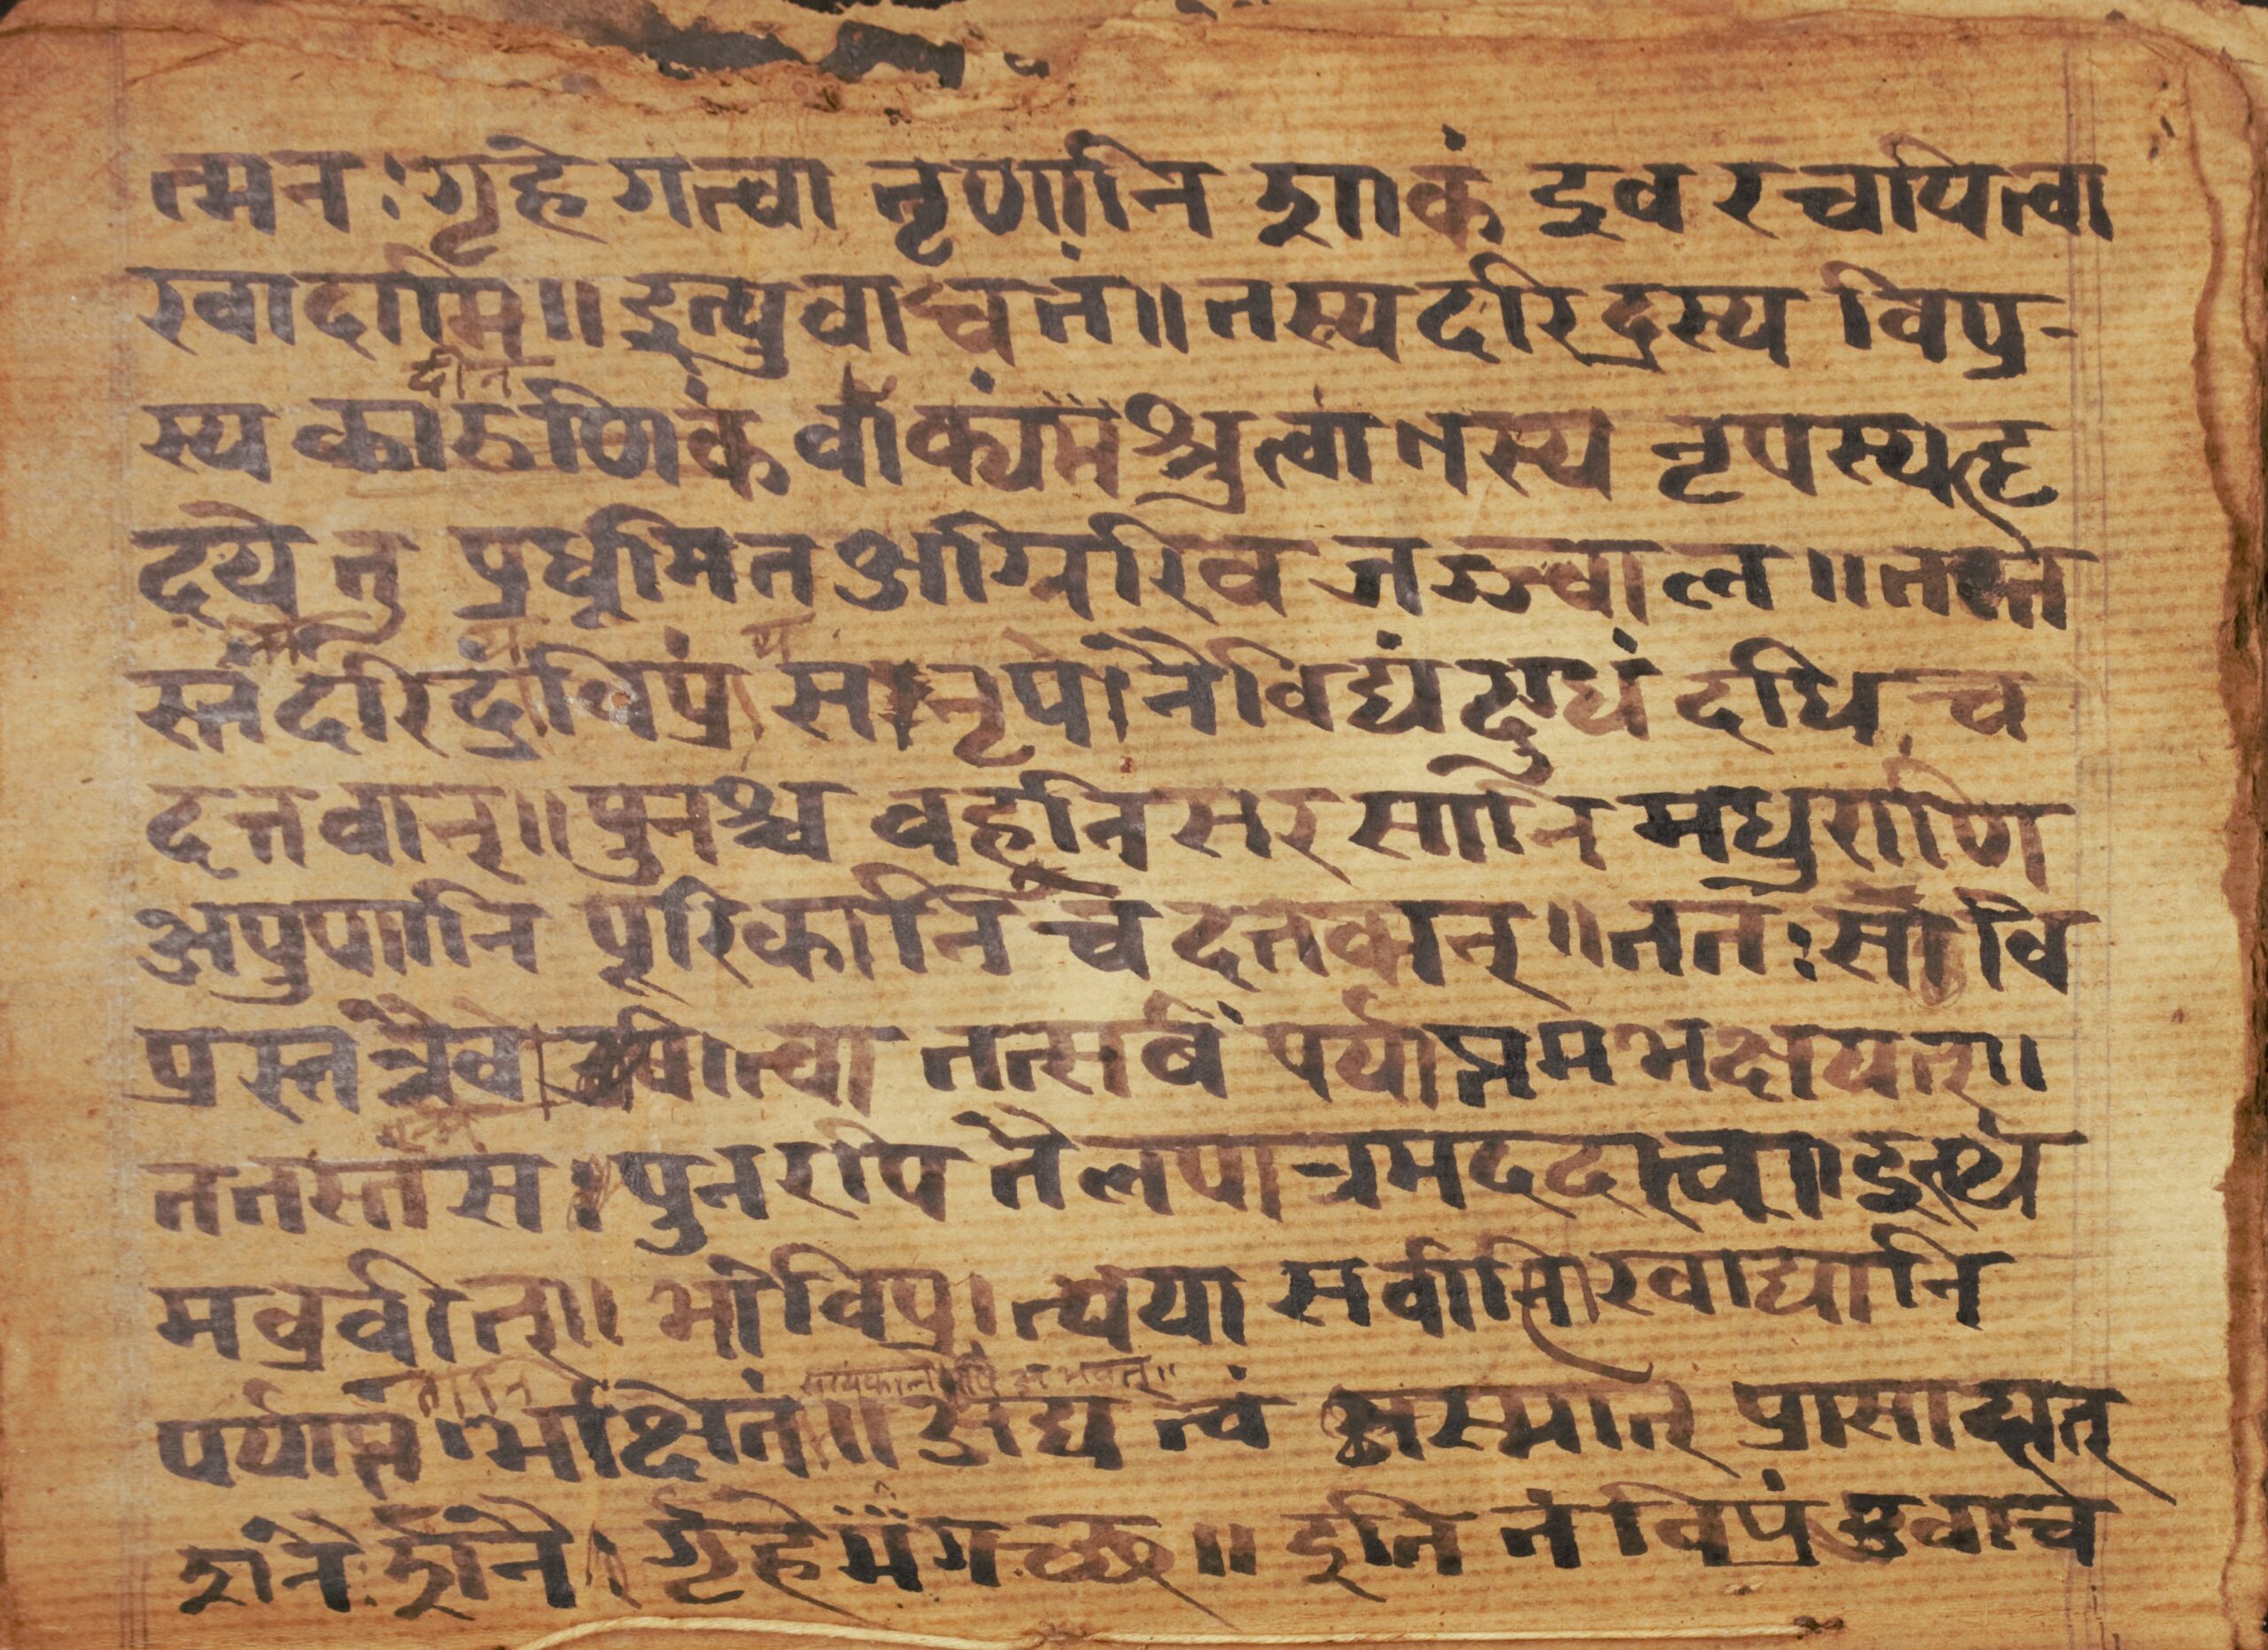 त्मनः गृहे गत्वा तृणानि शाकं इव रचयित्वा
खादामि॥ इत्युवाच तं॥ तस्य दरिद्रस्य विप्र-
दीन
स्य कारुणिकं वाक्यं श्रुत्वा तस्य नृपस्य हृ
दये तु प्रधूमित अग्निरिव जज्वाल॥
दरिद्रं विप्रं नृपो नैविद्यं दुग्धं दधि च
दत्तवान्॥ पुनश्च बहूनि सरसानि मधुराणि
अपुपानि पूरिकानि च दत्तवान्॥ ततः सो वि
प्रस्तत्रैव तत्सर्वं पर्याप्तमभक्षयत्।
पुनरपि तैलपात्रमददत्॥ इत्थ
मब्रवीत्॥ भो विप्र। त्वया सर्वाणि खाद्यानि
पर्याप्त भक्षितं॥ अद्य त्वं अस्मात् प्रासादात्
शनैः शनै। गृहे गच्छ॥ इति तं विप्रं उवाच